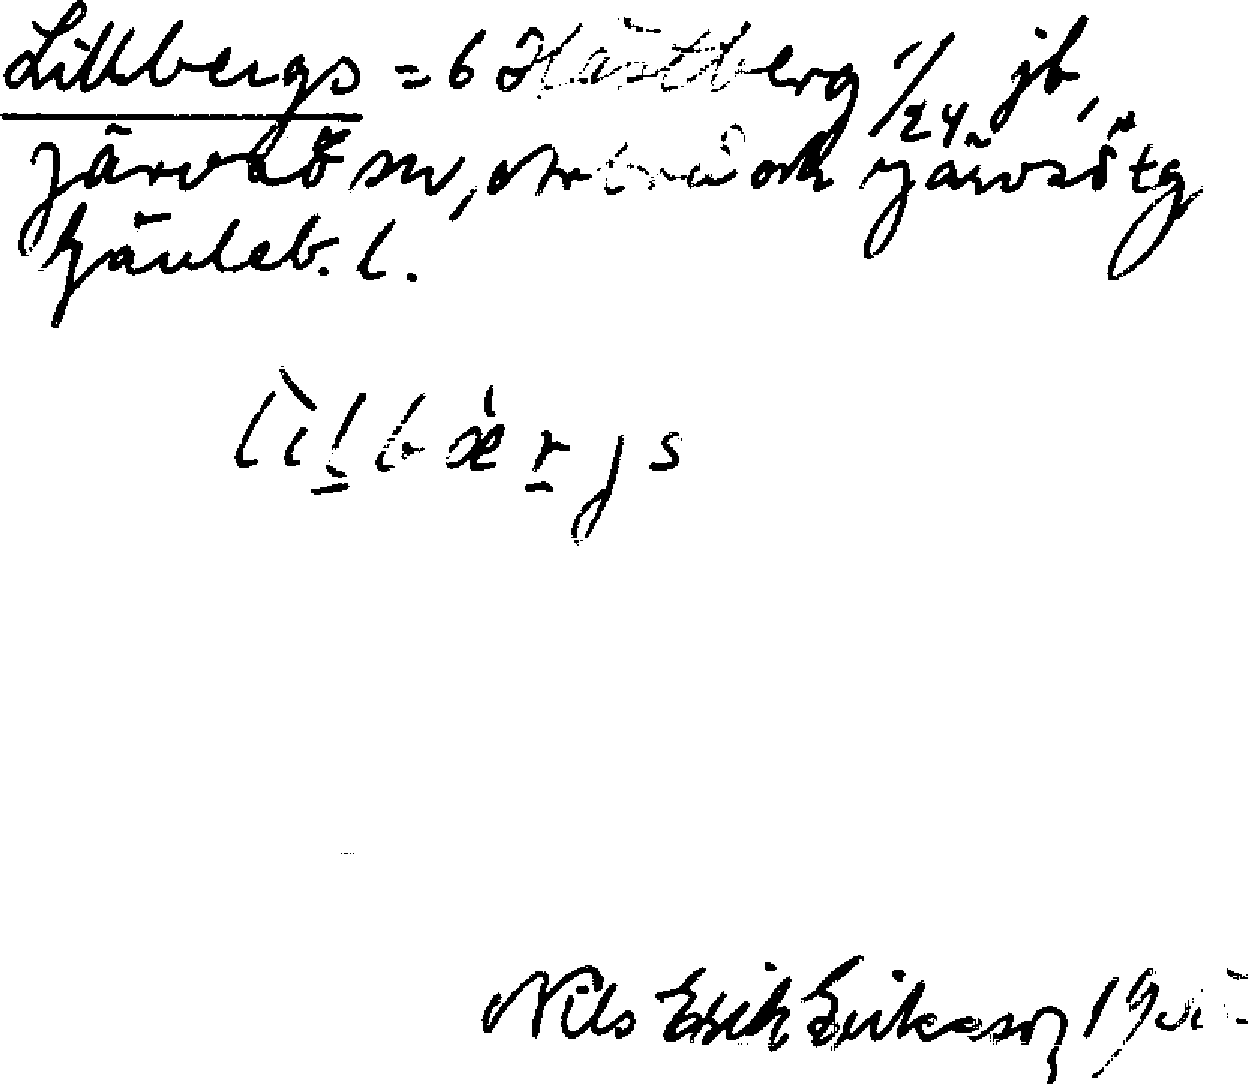 Lillbergs = 6 Hästberg 1/24 jb,
Järvsö sn, Arbrå och Järvsö tg
Gävleb. l.
lìlbæ̀rjs
Nils Erik Eriksson